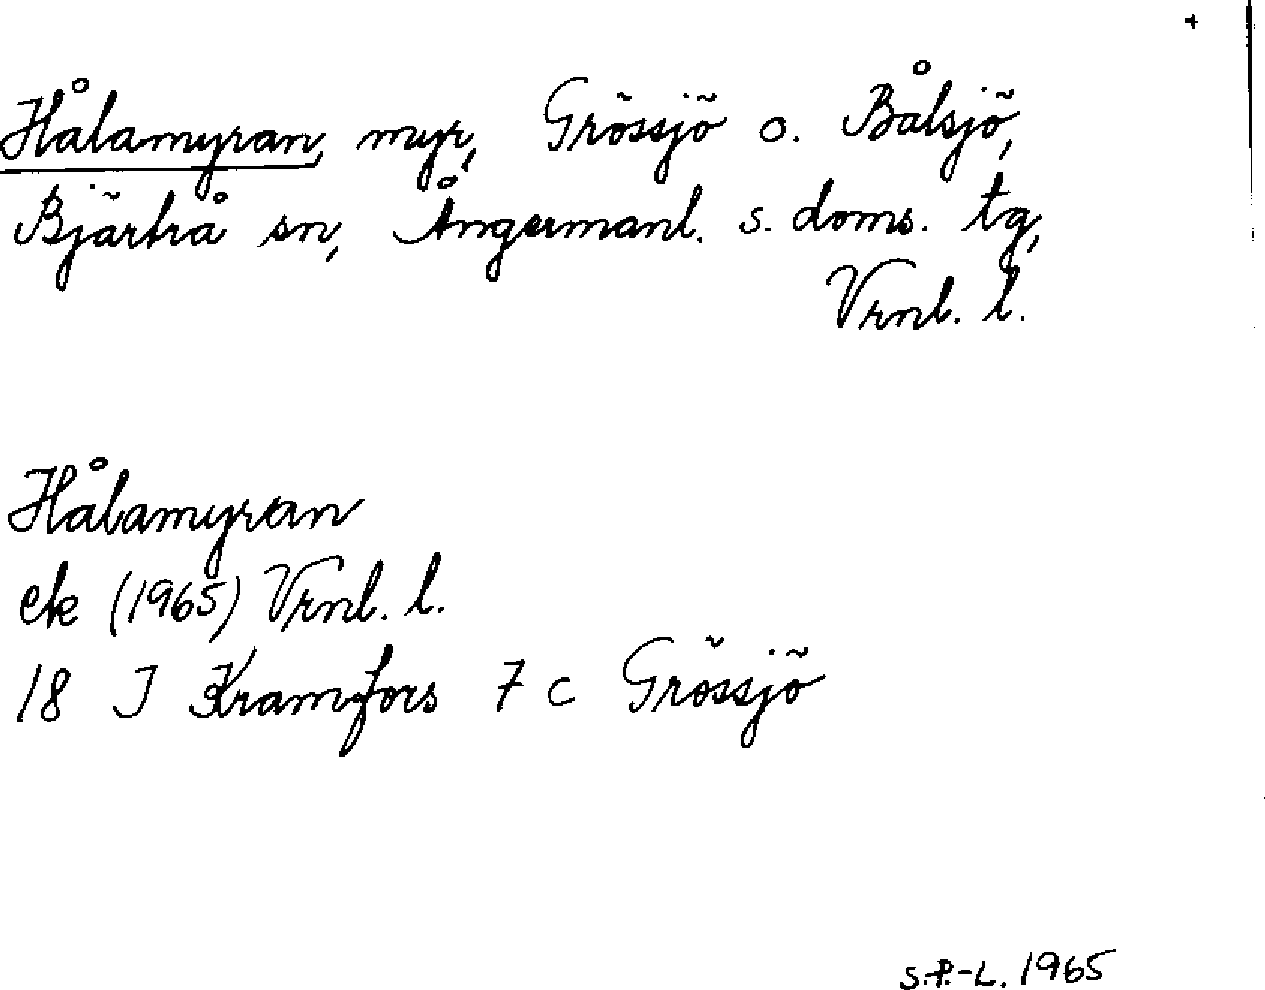 +
Hålamyran, myr, Grössjö o. Bålsjö,
Bjärtrå sn, Ångermanl. s. doms. tg,
Vrnl. l.
Hålamyran
ek (1965) Vrnl. l.
18 J Kramfors 7 c Grössjö
S.P.-L. 1965